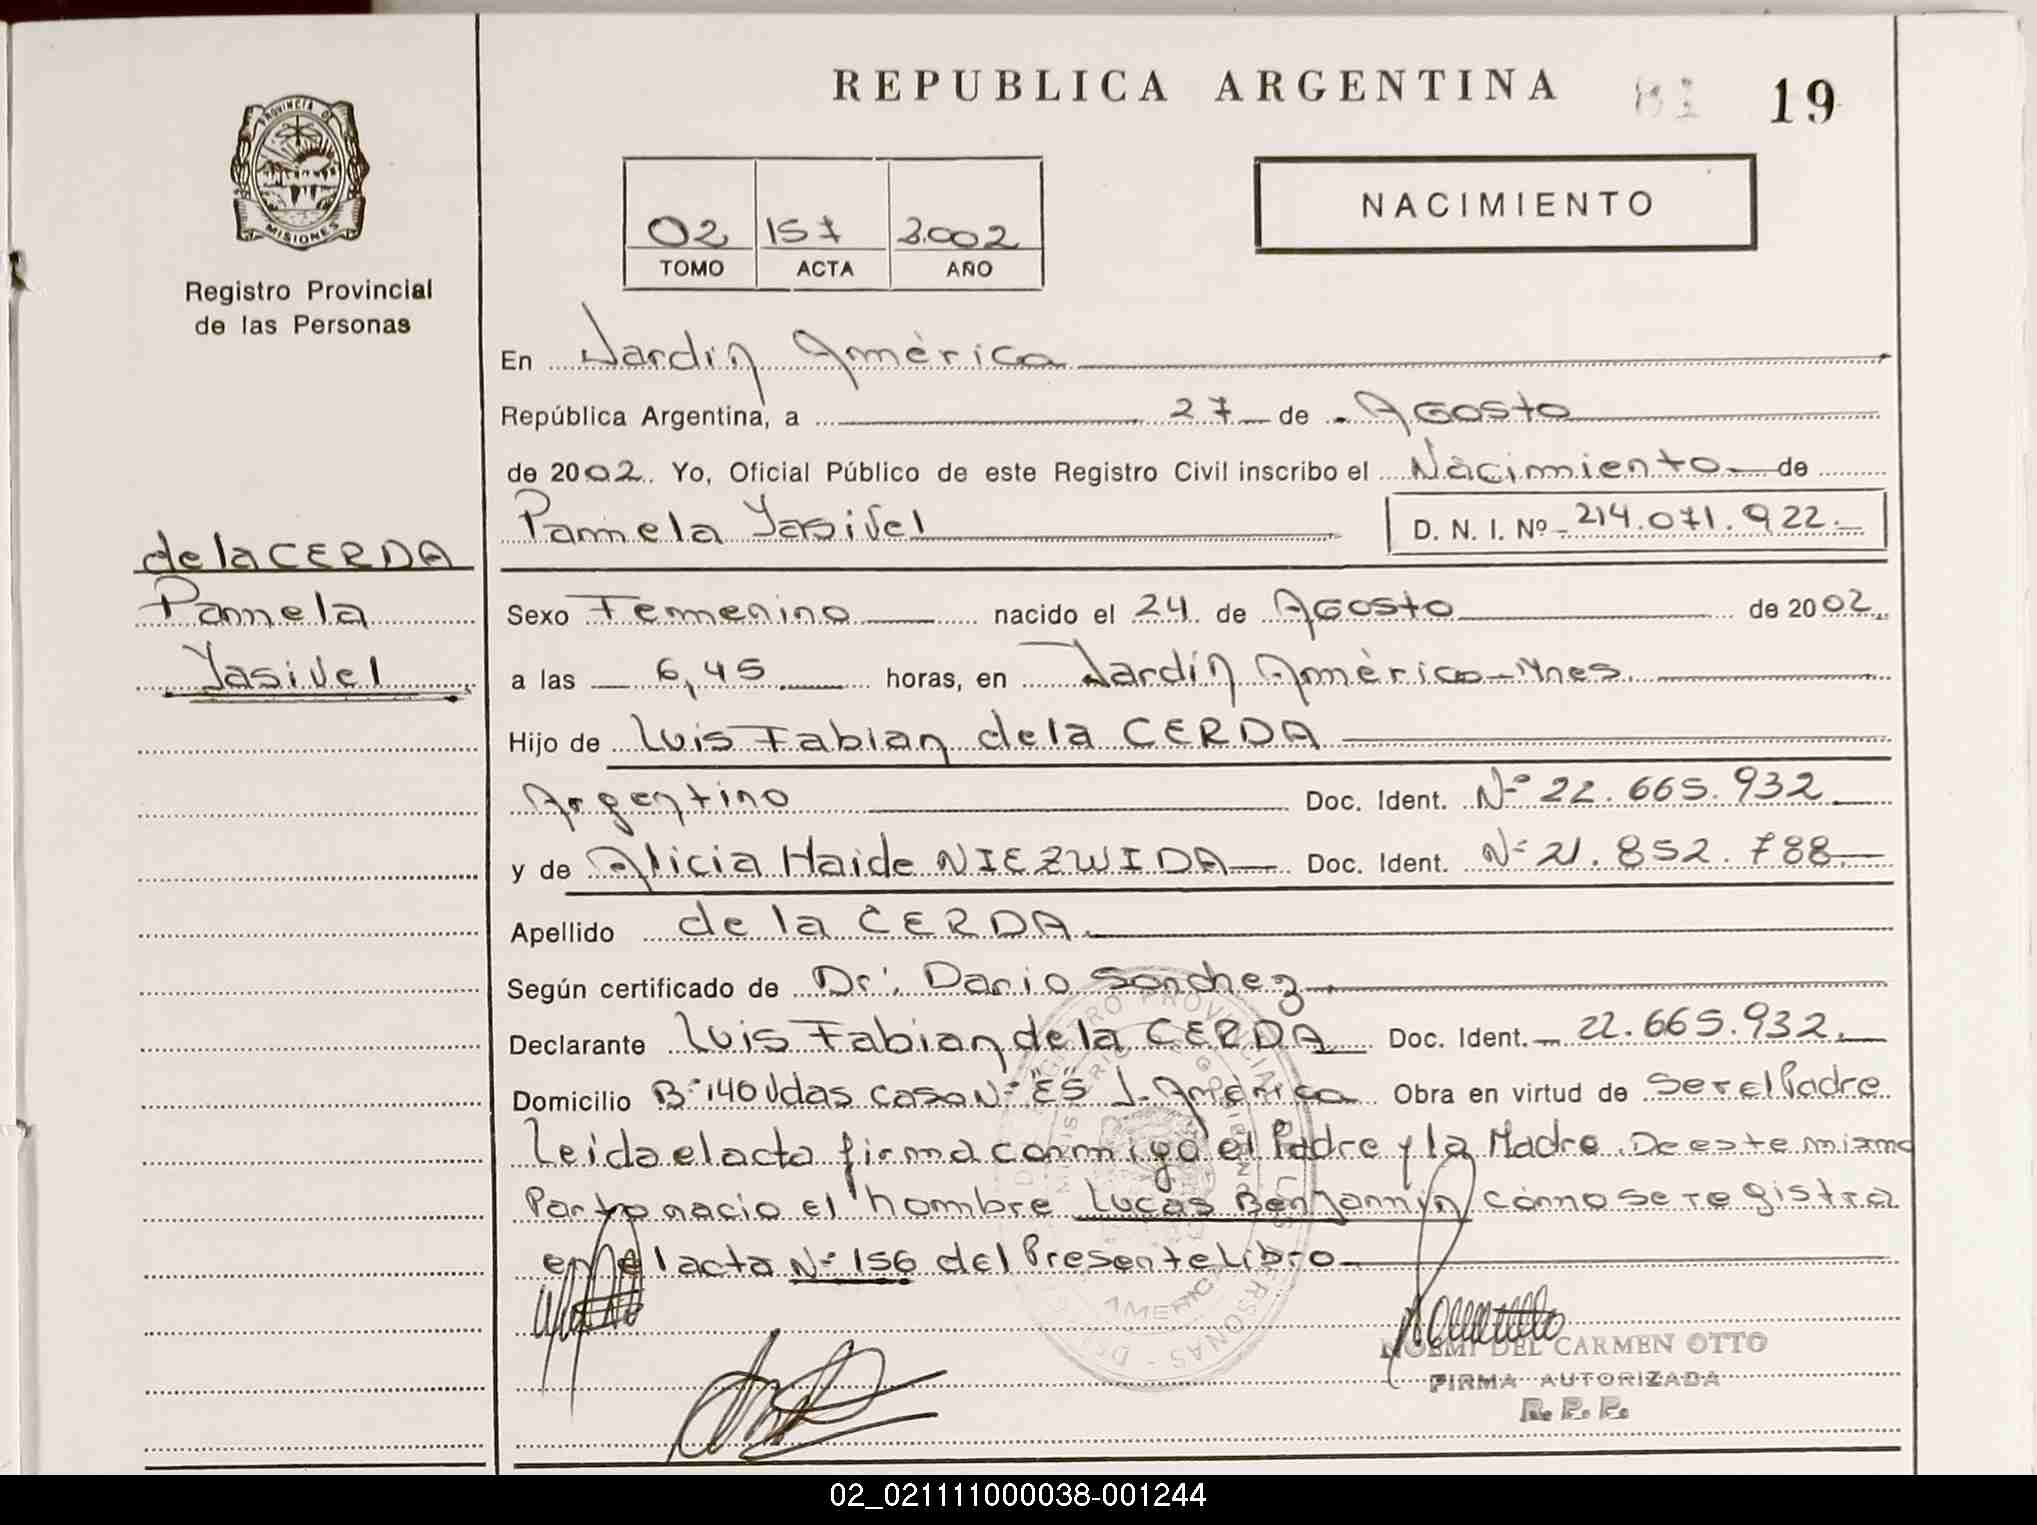 REPUBLICA ARGENTINA
19
PROVINCIA DE
MISIONES
Registro Provincial
de las Personas
NACIMIENTO
02 157 2.002
TOMO ACTA AÑO
En Jardín América
República Argentina, a 27 de Agosto
de 2002. Yo, Oficial Público de este Registro Civil inscribo el Nacimiento de
Pamela Yasivel D. N. I. Nº 44.071.922.
de la CERDA
Pamela
Yasivel
Sexo Femenino nacido el 24 de Agosto de 2002
a las 6,45 horas, en Jardín América - Mnes.
Hijo de Luis Fabian de la CERDA
Argentino Doc. Ident. Nº 22.665.932
y de Alicia Haide NIEZWIDA Doc. Ident. Nº 21.852.788
Apellido de la CERDA
Según certificado de Dr. Dario Sanchez
Declarante Luis Fabian de la CERDA Doc. Ident. 22.665.932.
Domicilio Bº 140 Vdas casa Nº "E5" J. América Obra en virtud de ser el Padre
Leida el acta firma conmigo el Padre y la Madre. De este mismo
Parto nacio el hombre Lucas Benjamin como se registra
en el acta Nº 156 del Presente Libro
NOEMI DEL CARMEN OTTO
FIRMA AUTORIZADA
R. P. P.
02_021111000038-001244